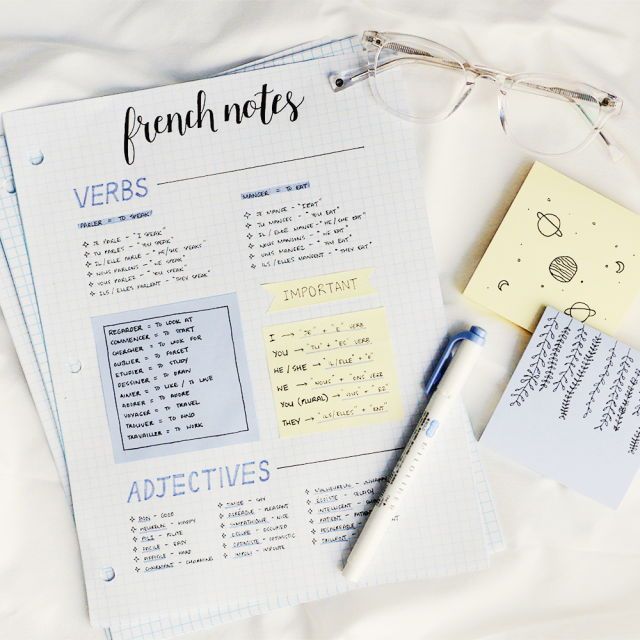 french notes
VERBS
PARLER = TO SPEAK
JE PARLE - "I SPEAK"
TU PARLES - "YOU SPEAK"
IL/ELLE PARLE - "HE/SHE SPEAKS"
NOUS PARLONS - "WE SPEAK"
VOUS PARLEZ - "YOU SPEAK"
ILS/ELLES PARLENT - "THEY SPEAK"
MANGER = TO EAT
JE MANGE - "I EAT"
TU MANGES - "YOU EAT"
IL/ELLE MANGE - "HE/SHE EAT"
NOUS MANGONS - "WE EAT"
VOUS MANGEZ - "YOU EAT"
ILS/ELLES MANGENT - "THEY EAT"
REGARDER = TO LOOK AT
COMMENCER = TO START
CHERCHER = TO LOOK FOR
OUBLIER = TO FORGET
ETUDIER = TO STUDY
DESSINER = TO DRAW
AIMER = TO LIKE / TO LOVE
ADORER = TO ADORE
VOYAGER = TO TRAVEL
TROUVER = TO FIND
TRAVAILLER = TO WORK
IMPORTANT
I → "JE" + "E" VERB
YOU → "TU" + "ES" VERB
HE/SHE → "IL/ELLE" + "E"
WE → "NOUS" + "ONS" VERB
YOU (PLURAL) → "VOUS" + "EZ"
THEY → "ILS/ELLES" + "ENT"
ADJECTIVES
BON - GOOD
HEUREUX - HAPPY
POLI - POLITE
FACILE - EASY
DIFFICILE - HARD
CHARMANT - CHARMING
TIMIDE - SHY
AGRÉABLE - PLEASANT
SYMPATHIQUE - NICE
OPTIMISTE - OPTIMISTIC
IMPOLI - IMPOLITE
MALHEUREUX - UNHAPPY
EGOISTE - SELFISH
INTELLIGENT
PATIENT